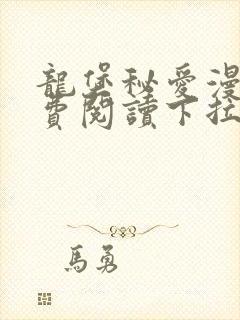 龍堡秘愛漫
費閱讀下拉
馬勇